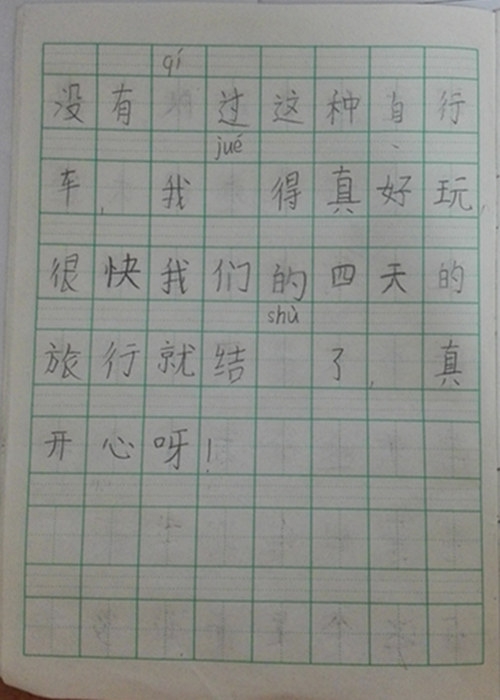 qí
没有 过这种自行
jué
车，我 得真好玩，
很快我们的四天的
shù
旅行就结 了，真
开心呀！